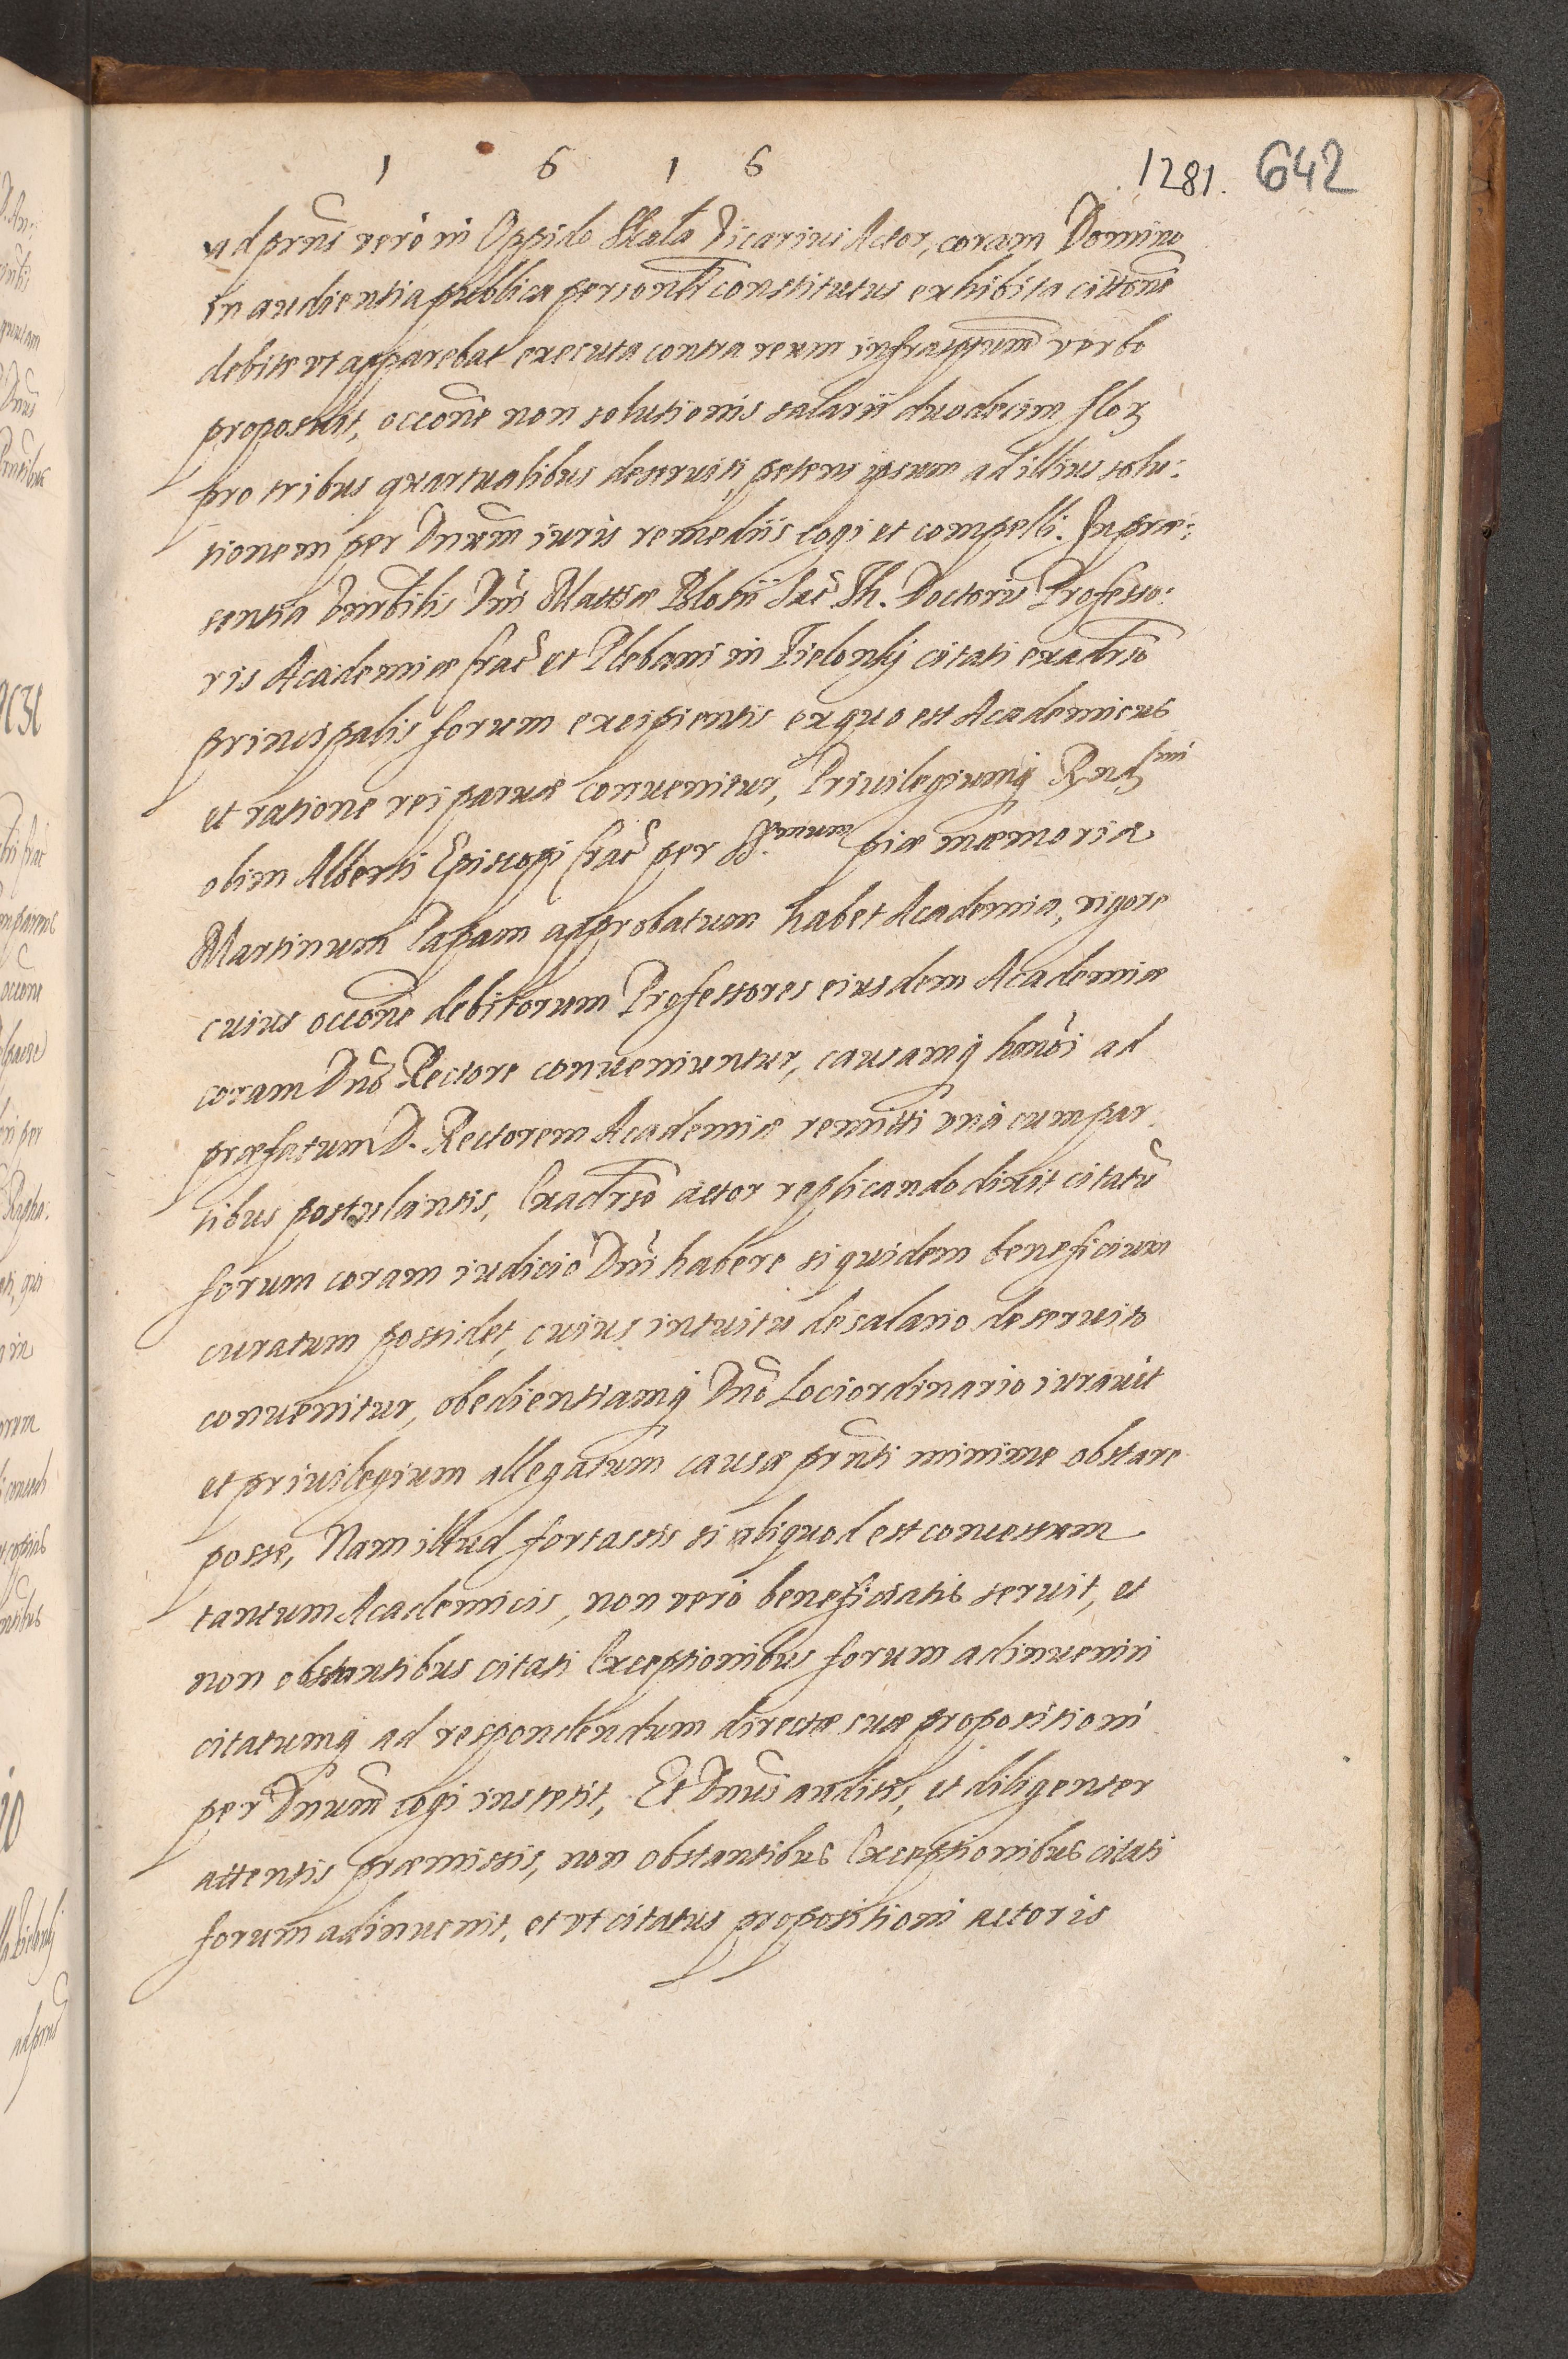 1 6 1 6
1281. 642
ad prñs vero in Oppido Skala Vicarius Actor, coram Domino
in audientia publica personlr constitutus exhibita cittone
debite vt apparebat executa contra reum infrascriptum verbo
proposuit, occone non solutionis salarii duodecim flor
pro tribus quartualibus deseruiti, petens ipsum ad illius solu:
tionem per Dnum iuris remediis cogi et compelli. In præ:
sentia Dni Matthiæ Sac. Th. Doctoris Professo:
ris Academiæ Crac et Plebani in Zielonky citati exadrso
principalis forum excipientis ex quo est Academicus
et ratione rei paruæ conuenitur, Priuilegiumq Rndmi
olim Alberti Episcopi Crac per SS.mum piæ mæmoriæ
Martinum Papam approbatum habet Academia, vigore
cuius occone debitorum Professores eiusdem Academiæ
coram Dno Rectore conueniuntur, causamq ad
præfatum D. Rectorem Academiæ remitti vna cum par:
tibus postulantis, Exadrso actor replicando dixit citatu
forum coram iudicio Dni habere siquidem beneficium
curatum possidet, cuius intuitu de salario deseruito
conuenitur, obedientiamq Dno Loci ordinario iurauit
et priuilegium allegatum causæ prnti minime obstare
posse, Nam illud fortassis si aliquod est concessum
tantum Academicis, non vero beneficiatis seruit, et
non obstantibus citati Exceptionibus forum adinueniri
citatumq ad respondendum directe suæ propositioni
per Dnum cogi institit, Et Dnus auditis, et diligenter
attentis præmissis, non obstantibus Exceptionibus citati
forum adinuenit, et vt citatus propositioni actoris